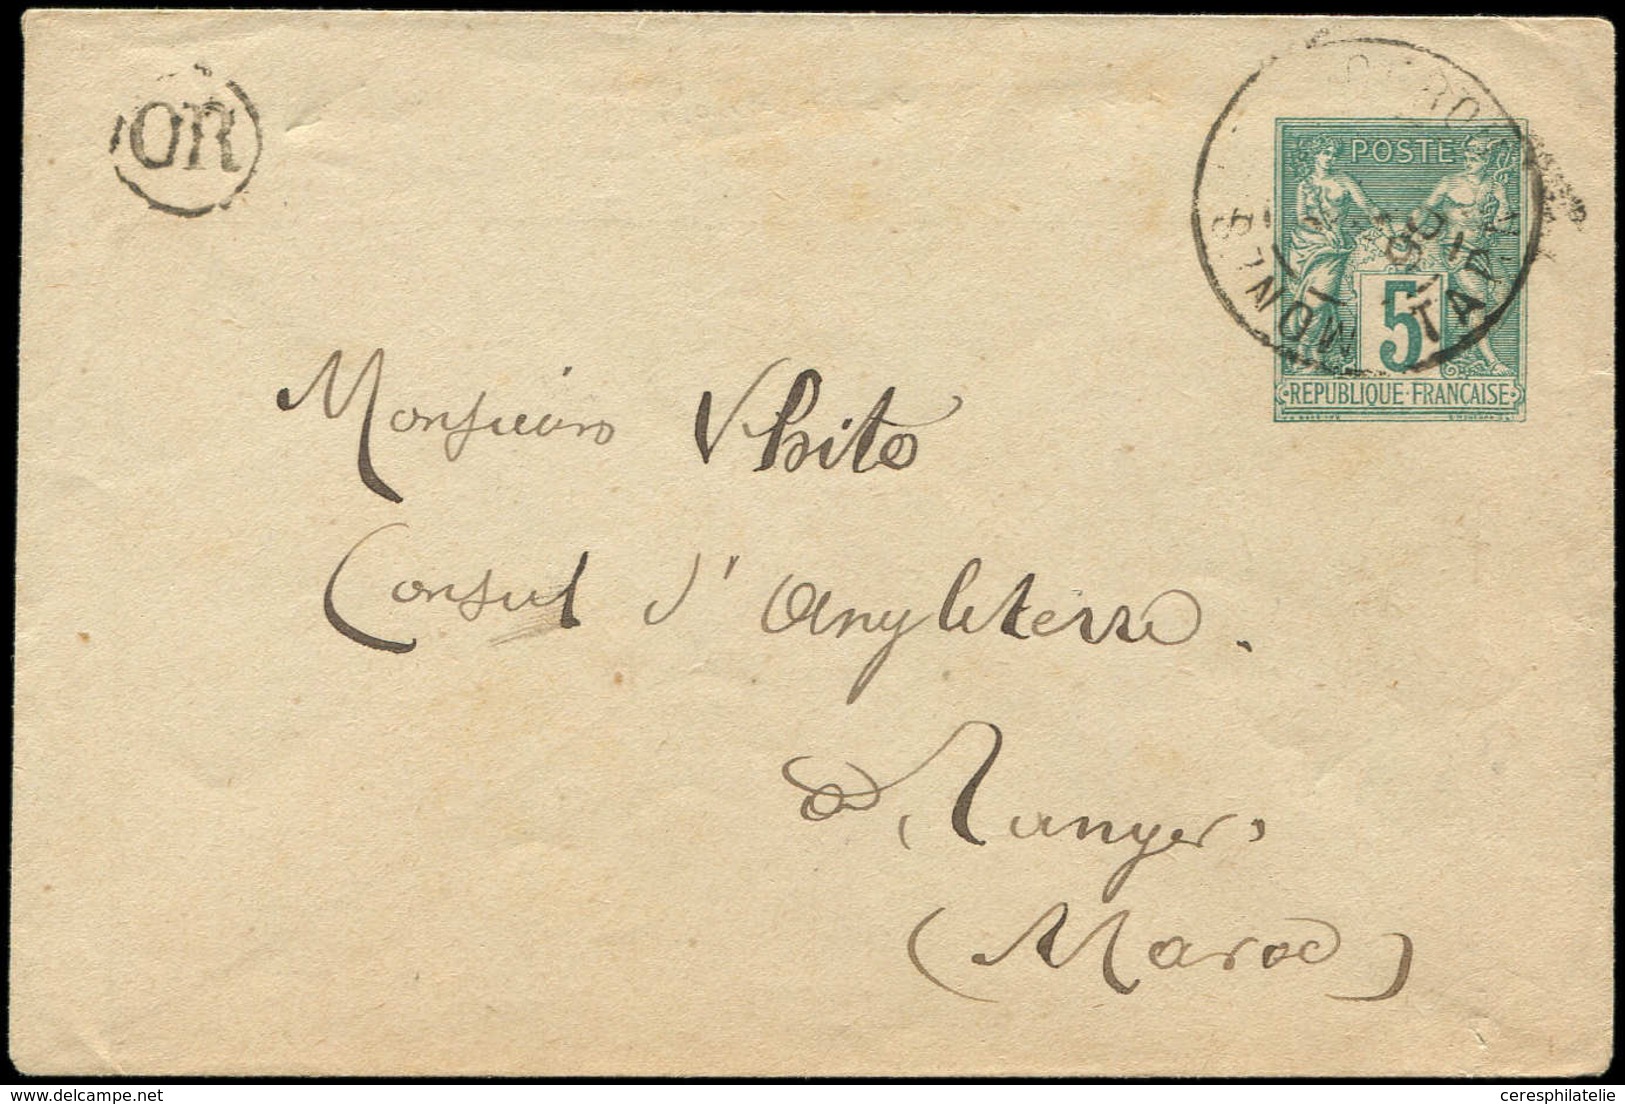 OR
POSTE
5
REPUBLIQUE·FRANCAISE
Monsieur White
Consul d'Angleterre.
à Tanger,
(Maroc)
delcampe.net
ceresphilatelie